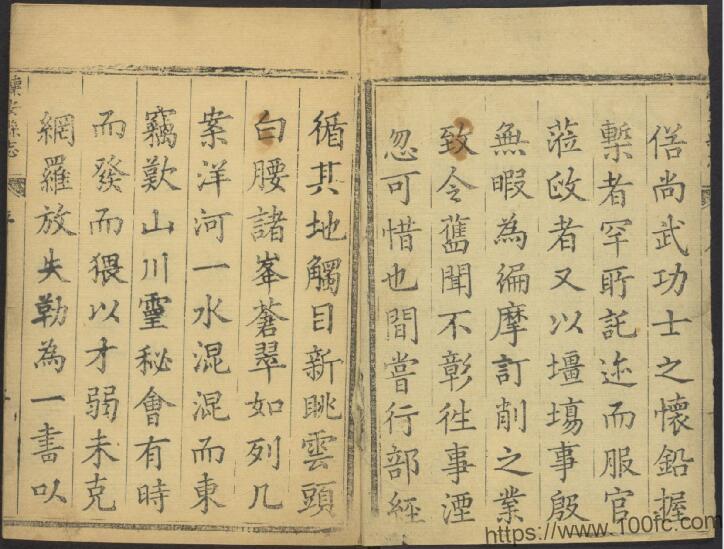 俗尚武功士之懷鉛握
槧者罕所託迹而服官
蒞政者又以壃埸事殷
無暇為編摩訂削之業
致令舊聞不彰徃事湮
忽可惜也間嘗行部經
循其地觸目新眺雲頭
白腰諸峯蒼翠如列几
案洋河一水混混而東
竊歎山川靈秘會有時
而發而猥以才弱未克
網羅放失勒為一書以
懷安縣志
序
https://www.100fc.com